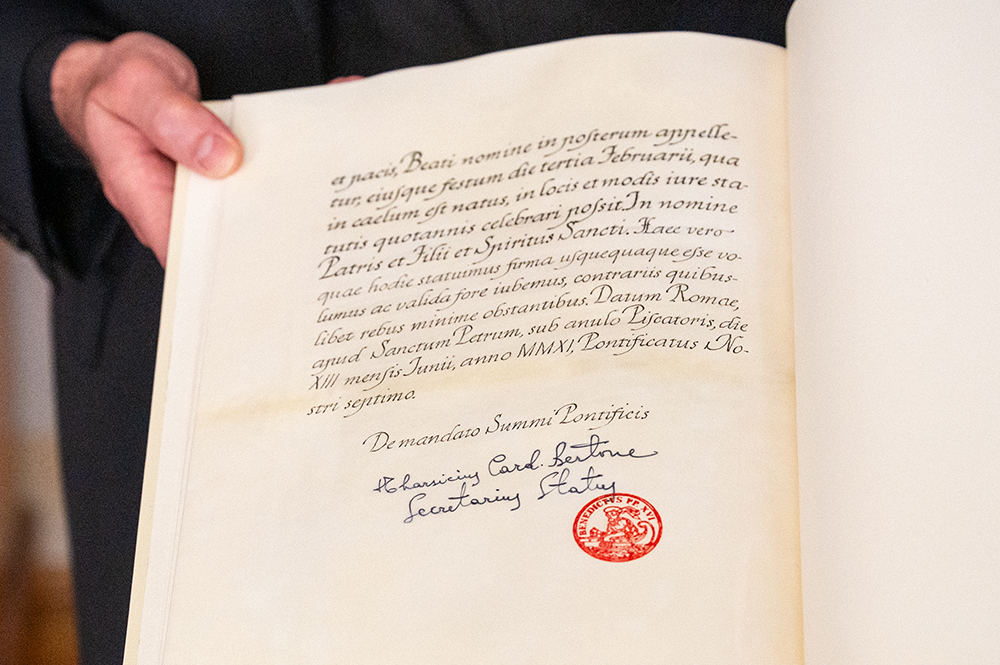 et pacis, Beati nomine in posterum appelle-
tur, eiusque festum die tertia Februarii, qua
in caelum est natus, in locis et modis iure sta-
tutis quotannis celebrari possit. In nomine
Patris et Filii et Spiritus Sancti. Haec vero
quae hodie statuimus firma usquequaque esse vo-
lumus ac valida fore iubemus, contrariis quibus-
libet rebus minime obstantibus. Datum Romae,
apud Sanctum Petrum, sub anulo Piscatoris, die
XIII mensis Iunii, anno MMXI, Pontificatus No-
stri septimo.
De mandato Summi Pontificis
Tharsicius Card. Bertone
Secretarius Status
BENEDICTVS PP. XVI